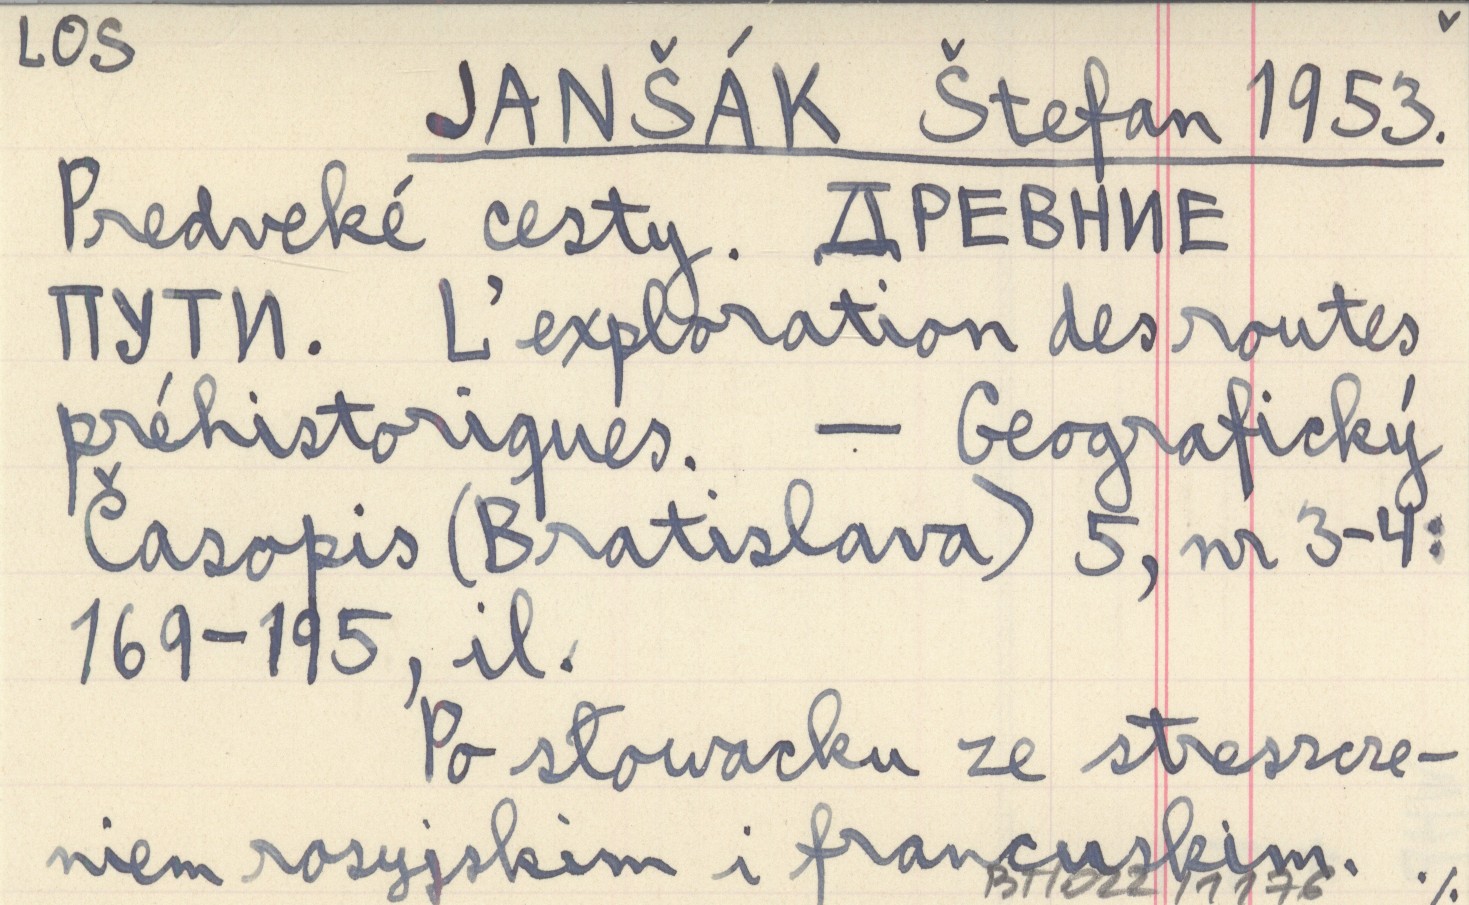 LOS
JANŠÁK Štefan 1953.
Predveké cesty. ДРЕВНИЕ
ПУТИ. L'exploration des routes
préhistoriques. — Geografický
Časopis (Bratislava) 5, nr 3-4:
169-195, il.
Po słowacku ze streszcze-
niem rosyjskim i francuskim. ./.
BTI022/1176